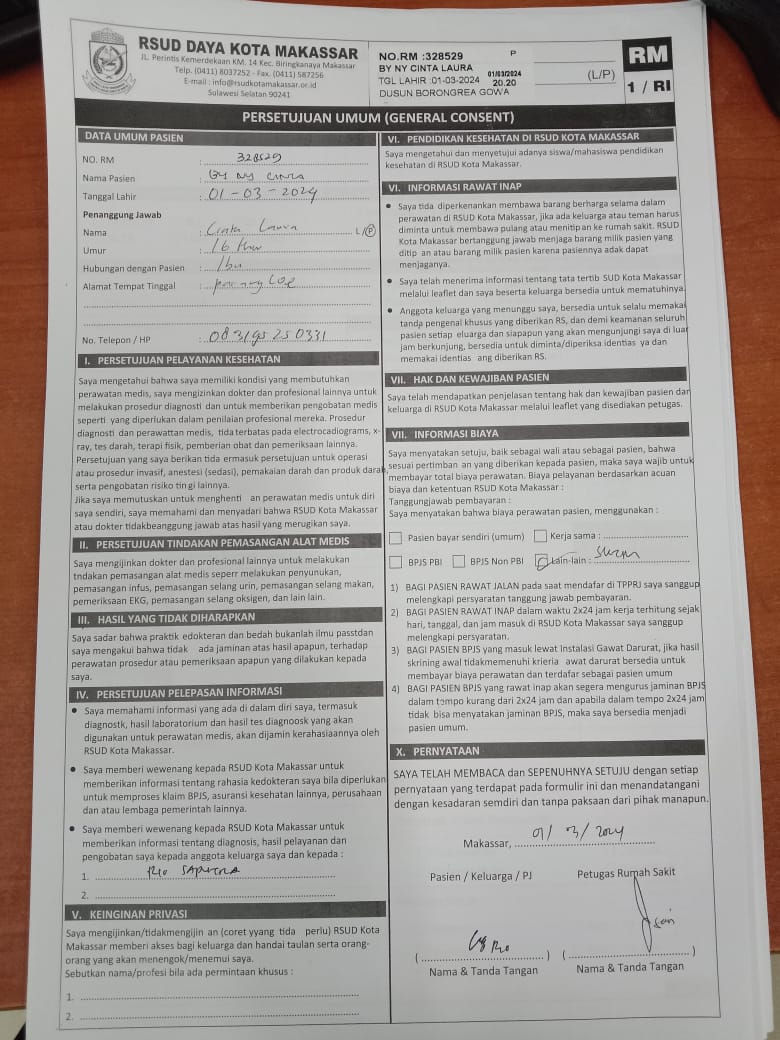 RSUD DAYA KOTA MAKASSAR
JL. Perintis Kemerdekaan KM. 14 Kec. Biringkanaya Makassar
Telp. (0411) 8037252 - Fax. (0411) 587256
E-mail : info@rsudkotamakassar.or.id
Sulawesi Selatan 90241
NO.RM :328529 P
BY NY CINTA LAURA
TGL LAHIR :01-03-2024 01/03/2024 20.20
DUSUN BORONGREA GOWA
(L/P)
RM
1 / RI
PERSETUJUAN UMUM (GENERAL CONSENT)
DATA UMUM PASIEN
NO. RM : 328529
Nama Pasien : BY NY CINTA
Tanggal Lahir : 01-03-2024
Penanggung Jawab
Nama : Cinta Laura L/P
Umur : 16 thn
Hubungan dengan Pasien : Ibu
Alamat Tempat Tinggal :
No. Telepon / HP : 083195250331
I. PERSETUJUAN PELAYANAN KESEHATAN
Saya mengetahui bahwa saya memiliki kondisi yang membutuhkan
perawatan medis, saya mengizinkan dokter dan profesional lainnya untuk
melakukan prosedur diagnosti dan untuk memberikan pengobatan medis
seperti yang diperlukan dalam penilaian profesional mereka. Prosedur
diagnosti dan perawattan medis, tida terbatas pada electrocadiograms, x-
ray, tes darah, terapi fisik, pemberian obat dan pemeriksaan lainnya.
Persetujuan yang saya berikan tida ermasuk persetujuan untuk operasi
atau prosedur invasif, anestesi (sedasi), pemakaian darah dan produk darah,
serta pengobatan risiko tin gi lainnya.
Jika saya memutuskan untuk menghenti an perawatan medis untuk diri
saya sendiri, saya memahami dan menyadari bahwa RSUD Kota Makassar
atau dokter tidakbeanggung jawab atas hasil yang merugikan saya.
II. PERSETUJUAN TINDAKAN PEMASANGAN ALAT MEDIS
Saya mengijinkan dokter dan profesional lainnya untuk melakukan
tndakan pemasangan alat medis seperr melakukan penyunukan,
pemasangan infus, pemasangan selang urin, pemasangan selang makan,
pemeriksaan EKG, pemasangan selang oksigen, dan lain lain.
III. HASIL YANG TIDAK DIHARAPKAN
Saya sadar bahwa praktik edokteran dan bedah bukanlah ilmu passtdan
saya mengakui bahwa tidak ada jaminan atas hasil apapun, terhadap
perawatan prosedur atau pemeriksaan apapun yang dilakukan kepada
saya.
IV. PERSETUJUAN PELEPASAN INFORMASI
● Saya memahami informasi yang ada di dalam diri saya, termasuk
diagnostk, hasil laboratorium dan hasil tes diagnoosk yang akan
digunakan untuk perawatan medis, akan dijamin kerahasiaannya oleh
RSUD Kota Makassar.
● Saya memberi wewenang kepada RSUD Kota Makassar untuk
memberikan informasi tentang rahasia kedokteran saya bila diperlukan
untuk memproses klaim BPJS, asuransi kesehatan lainnya, perusahaan
dan atau lembaga pemerintah lainnya.
● Saya memberi wewenang kepada RSUD Kota Makassar untuk
memberikan informasi tentang diagnosis, hasil pelayanan dan
pengobatan saya kepada anggota keluarga saya dan kepada :
1. RIO SAPUTRA
2.
V. KEINGINAN PRIVASI
Saya mengijinkan/tidakmengijin an (coret yyang tida perlu) RSUD Kota
Makassar memberi akses bagi keluarga dan handai taulan serta orang-
orang yang akan menengok/menemui saya.
Sebutkan nama/profesi bila ada permintaan khusus :
1.
2.
VI. PENDIDIKAN KESEHATAN DI RSUD KOTA MAKASSAR
Saya mengetahui dan menyetujui adanya siswa/mahasiswa pendidikan
kesehatan di RSUD Kota Makassar.
VI. INFORMASI RAWAT INAP
● Saya tida diperkenankan membawa barang berharga selama dalam
perawatan di RSUD Kota Makassar, jika ada keluarga atau teman harus
diminta untuk membawa pulang atau menitip an ke rumah sakit. RSUD
Kota Makassar bertanggung jawab menjaga barang milik pasien yang
ditip an atau barang milik pasien karena pasiennya adak dapat
menjaganya.
● Saya telah menerima informasi tentang tata tertib SUD Kota Makassar
melalui leaflet dan saya beserta keluarga bersedia untuk mematuhinya.
● Anggota keluarga yang menunggu saya, bersedia untuk selalu memakai
tanda pengenal khusus yang diberikan RS, dan demi keamanan seluruh
pasien setiap eluarga dan siapapun yang akan mengunjungi saya di luar
jam berkunjung, bersedia untuk diminta/diperiksa identias ya dan
memakai identias ang diberikan RS.
VII. HAK DAN KEWAJIBAN PASIEN
Saya telah mendapatkan penjelasan tentang hak dan kewajiban pasien dan
keluarga di RSUD Kota Makassar melalui leaflet yang disediakan petugas.
VII. INFORMASI BIAYA
Saya menyatakan setuju, baik sebagai wali atau sebagai pasien, bahwa
sesuai pertimban an yang diberikan kepada pasien, maka saya wajib untuk
membayar total biaya perawatan. Biaya pelayanan berdasarkan acuan
biaya dan ketentuan RSUD Kota Makassar :
Tanggungjawab pembayaran :
Saya menyatakan bahwa biaya perawatan pasien, menggunakan :
Pasien bayar sendiri (umum) Kerja sama :
BPJS PBI BPJS Non PBI Lain-lain :
1) BAGI PASIEN RAWAT JALAN pada saat mendafar di TPPRJ saya sanggup
melengkapi persyaratan tanggung jawab pembayaran.
2) BAGI PASIEN RAWAT INAP dalam waktu 2x24 jam kerja terhitung sejak
hari, tanggal, dan jam masuk di RSUD Kota Makassar saya sanggup
melengkapi persyaratan.
3) BAGI PASIEN BPJS yang masuk lewat Instalasi Gawat Darurat, jika hasil
skrining awal tidakmemenuhi krieria awat darurat bersedia untuk
membayar biaya perawatan dan terdafar sebagai pasien umum
4) BAGI PASIEN BPJS yang rawat inap akan segera mengurus jaminan BPJS
dalam tempo kurang dari 2x24 jam dan apabila dalam tempo 2x24 jam
tidak bisa menyatakan jaminan BPJS, maka saya bersedia menjadi
pasien umum.
X. PERNYATAAN
SAYA TELAH MEMBACA dan SEPENUHNYA SETUJU dengan setiap
pernyataan yang terdapat pada formulir ini dan menandatangani
dengan kesadaran semdiri dan tanpa paksaan dari pihak manapun.
Makassar, 01/3/2024
Pasien / Keluarga / PJ Petugas Rumah Sakit
Nama & Tanda Tangan Nama & Tanda Tangan